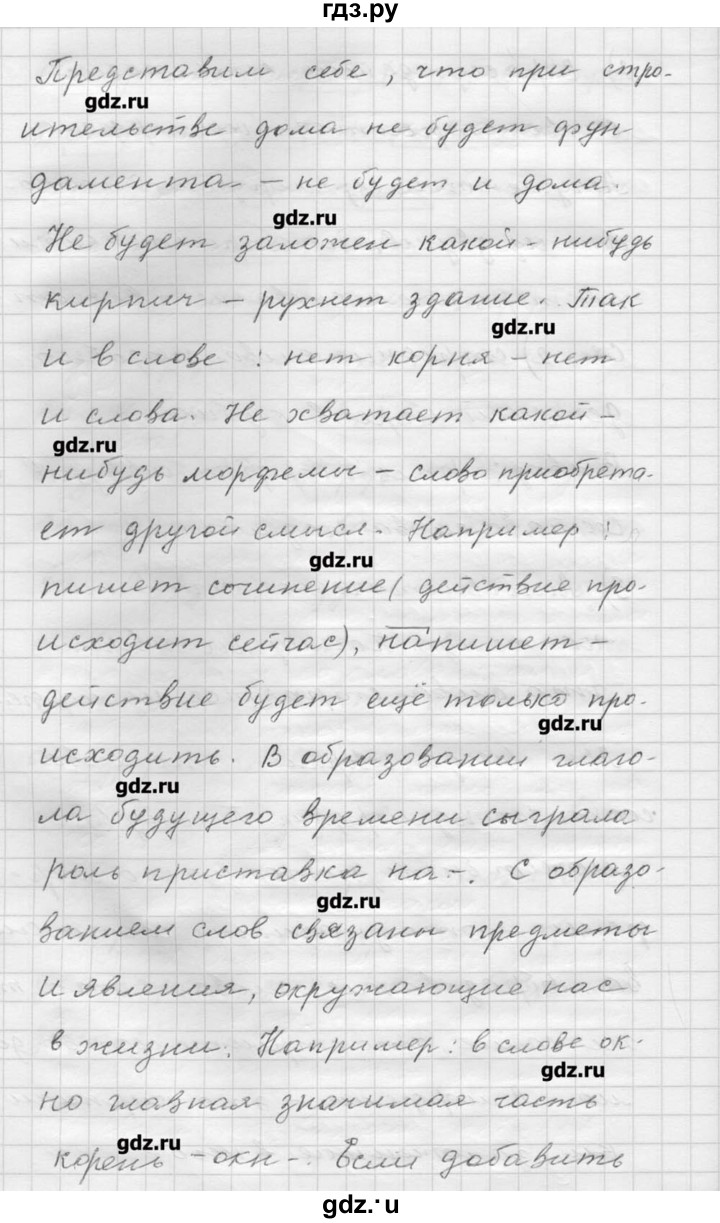 гдз.ру
Представим себе, что при стро-
gdz.ru
ительстве дома не будет фун
дамента - не будет и дома.
gdz.ru
Не будет заложен какой-нибудь
кирпич - рухнет здание. Так
gdz.ru
и в слове: нет корня - нет
и слова. Не хватает какой-
gdz.ru
нибудь морфемы - слово приобрета-
ет другой смысл. Например:
gdz.ru
пишет сочинение (действие про-
исходит сейчас), напишет -
действие будет ещё только про-
gdz.ru
исходить. В образовании глаго-
gdz.ru
ла будущего времени сыграла
роль приставка на-. С образо-
gdz.ru
ванием слов связаны предметы
и явления, окружающие нас
в жизни. Например: в слове ок-
gdz.ru
но главная значимая часть
gdz.ru
корень -окн-. Если добавить
gdz.ru